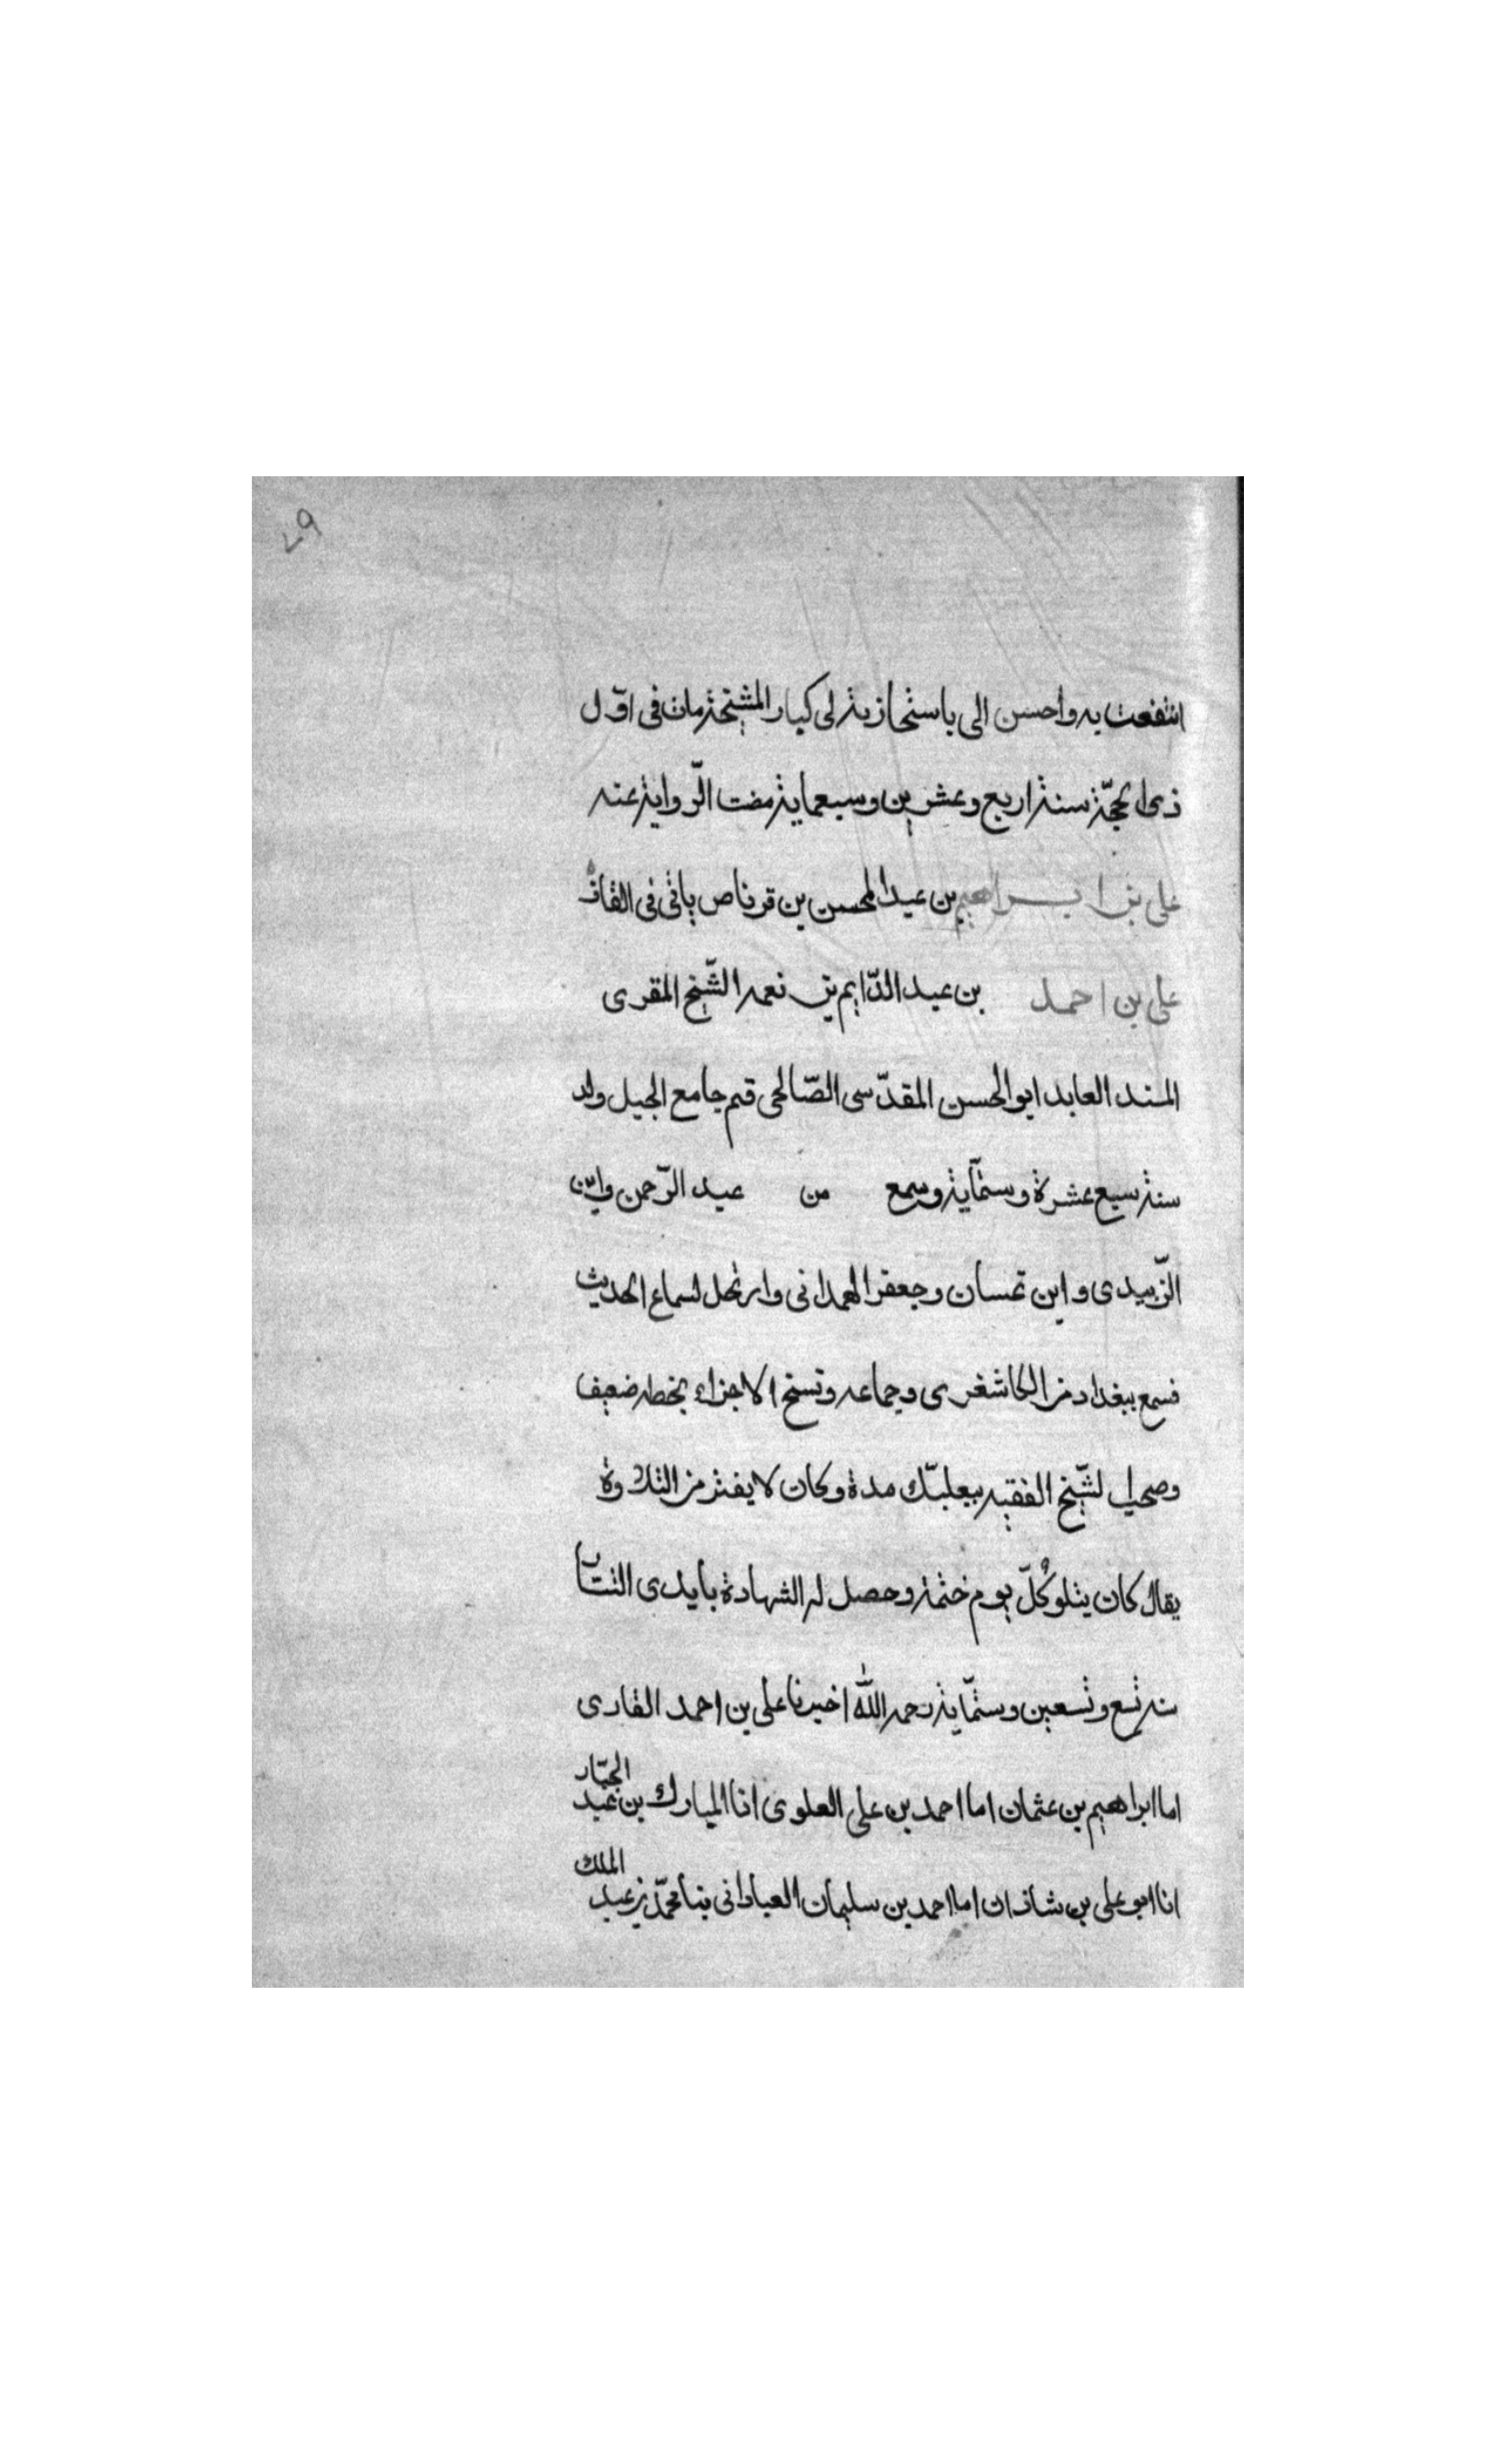 ٤٩
انتفعت به واحسن الى باستجازته لى كبار المشيخة مات فى اوّل
ذى الحجّة سنة اربع وعشرين وسبعماية مضت الرّواية عنه
على بن ابراهيم بن عبد المحسن بن قرناص ياتى فى القاف
على بن احمد بن عبد الدّايم بن نعمه الشّيخ المقرى
المسند العابد ابو الحسن المقدّسى الصّالحى قيم جامع الجبل ولد
سنة سبع عشرة وستّماية وسمع من عبد الرّحمن وابن
الزّبيدى وابن غسان وجعفر الهمدانى وارتحل لسماع الحديث
فسمع ببغداد من الكاشغرى وجماعه ونسخ الاجزاء بخطه ضعيف
وصحب الشّيخ الفقيه ببعلبّك مدة وكان لا يفتر من التلاوة
يقال كان يتلو كُلّ يوم ختمة وحصل له الشهادة بايدى التتار
سنة تسع وتسعين وستّماية رحمه اللّٰه اخبرنا على بن احمد القارى
اما ابراهيم بن عثمان اما احمد بن على العلوى انا المبارك بن عبد الجبّار
انا ابو على بن شاذان اما احمد بن سليمان العبادانى بنا محمّد بن عبد الملك